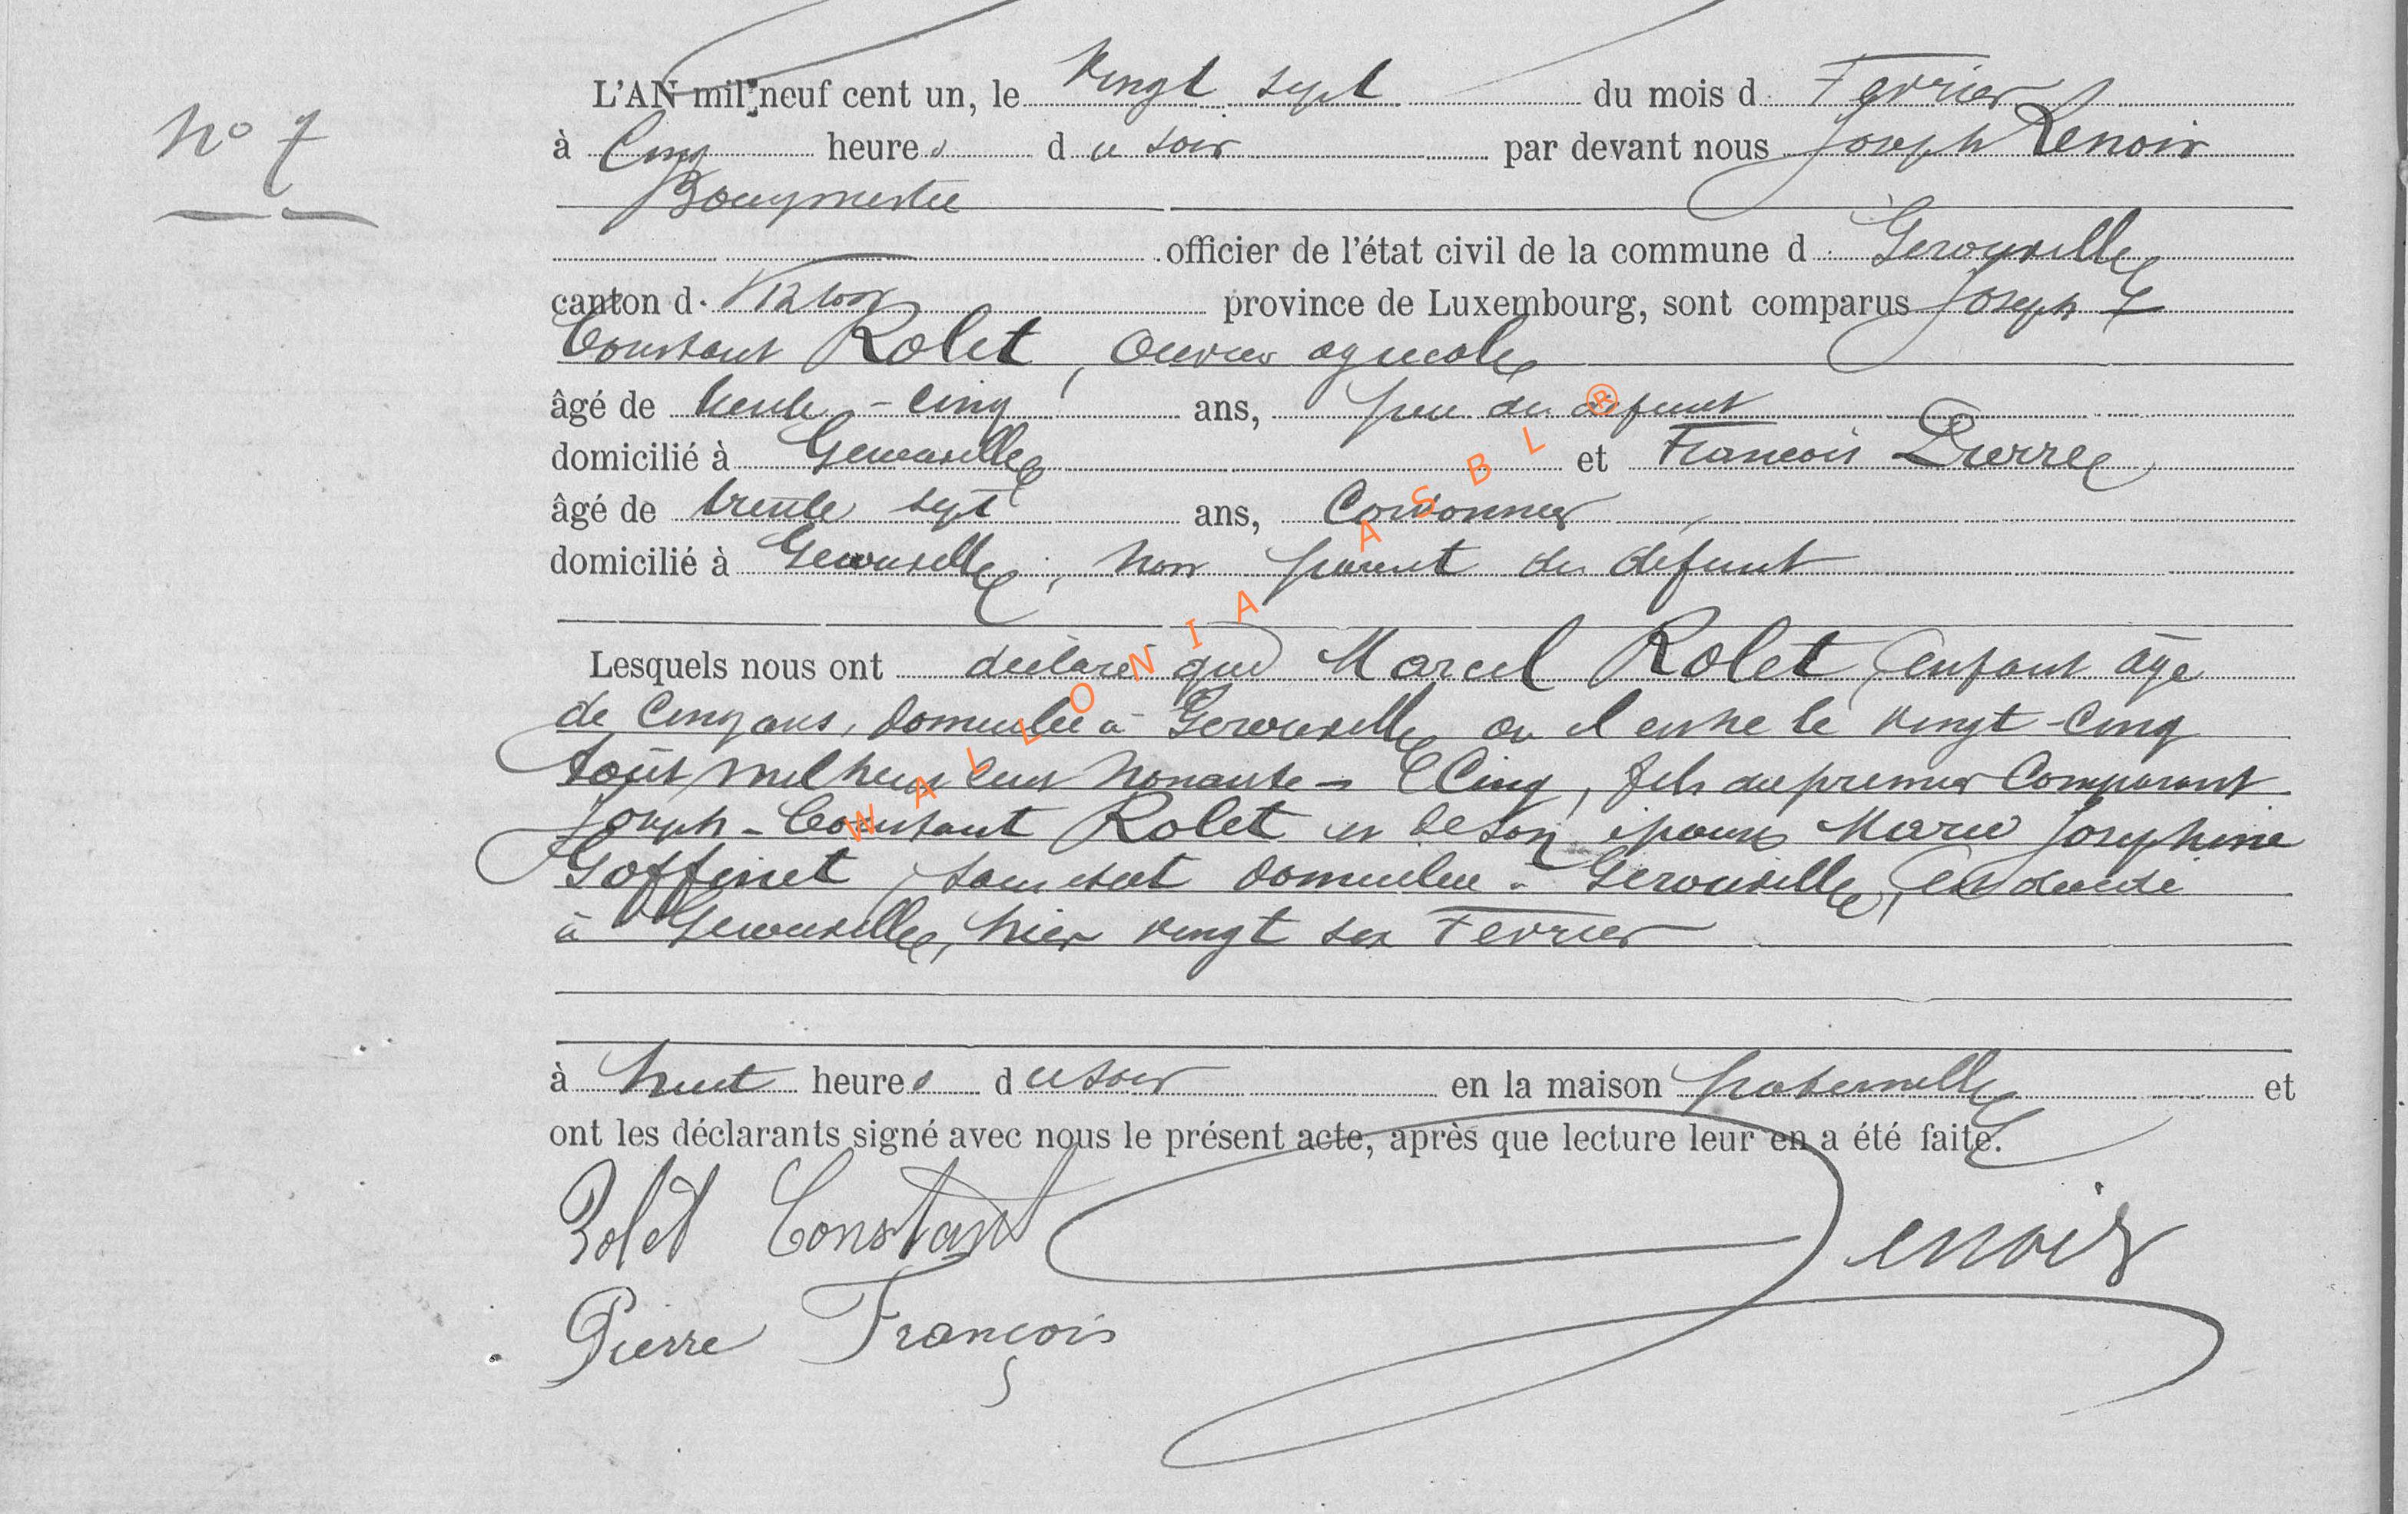 N° 7
L'AN mil neuf cent un, le vingt sept du mois d Fevrier
à Cinq heures du soir par devant nous Joseph Lenoir
Bourgmestre
officier de l'état civil de la commune d Gerouville
canton d. Virton province de Luxembourg, sont comparus Joseph
Constant Rolet, ouvrier agricole
âgé de trente-cinq ans, père du défunt
domicilié à Gerouville et François Pierre,
âgé de trente sept ans, Cordonnier
domicilié à Gerouville, non parent du défunt
Lesquels nous ont déclaré que Marcel Rolet, enfant âgé
de Cinq ans, domicilié à Gerouville où il est né le vingt-Cinq
Août mil huit cent nonante-Cinq, fils du premier Comparant
Joseph-Constant Rolet et de son épouse Marie Josephine
Goffinet, domiciliée à Gerouville, est décédé
à Gerouville, hier vingt six Fevrier
à huit heures du soir en la maison paternelle et
ont les déclarants signé avec nous le présent acte, après que lecture leur en a été faite.
Rolet Constant Lenoir
Pierre François
WALLONIA ASBL ®